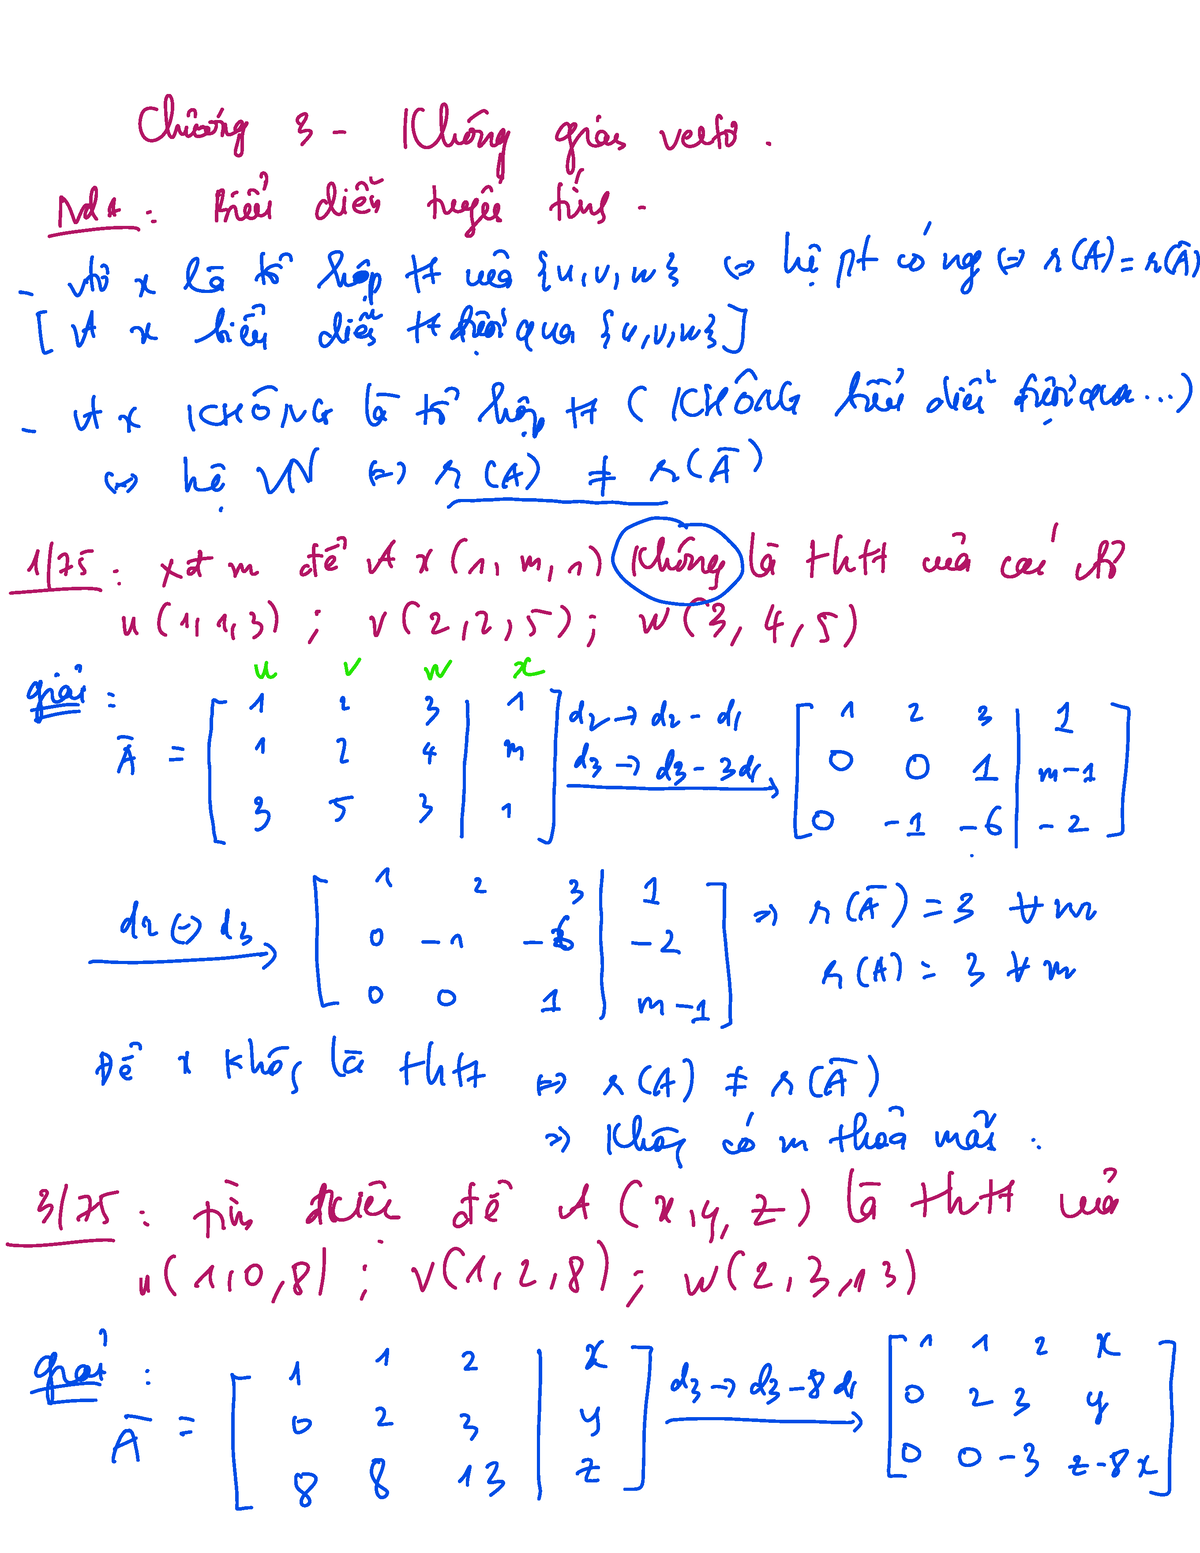 Chương 3 - Không gian vectơ.
Nd1: Biểu diễn tuyến tính.
- vtơ x là tổ hợp tt của {u,v,w} <=> hệ pt có ng <=> r(A) = r(Ā)
[ vt x biểu diễn tt được qua {u,v,w} ]
- vt x KHÔNG là tổ hợp tt ( KHÔNG biểu diễn được qua...)
<=> hệ VN <=> r(A) ≠ r(Ā)
1/75: xđ m để vt x(1, m, 1) không là thtt của các vtơ
u(1,1,3); v(2,2,5); w(3,4,5)
u v w x
giải:
Ā = [ 1 2 3 | 1 ] d2 → d2 - d1 [ 1 2 3 | 1 ]
[ 1 2 4 | m ] d3 → d3 - 3d1 [ 0 0 1 | m-1 ]
[ 3 5 3 | 1 ] [ 0 -1 -6 | -2 ]
d2 ↔ d3 [ 1 2 3 | 1 ] => r(Ā) = 3 ∀m
[ 0 -1 -6 | -2 ] r(A) = 3 ∀m
[ 0 0 1 | m-1 ]
Để x không là thtt <=> r(A) ≠ r(Ā)
=> Không có m thoả mãn.
3/75: tìm đkiện để vt (x,y,z) là thtt của
u(1,0,8); v(1,2,8); w(2,3,13)
giải:
Ā = [ 1 1 2 | x ] d3 → d3 - 8d1 [ 1 1 2 x ]
[ 0 2 3 | y ] [ 0 2 3 y ]
[ 8 8 13 | z ] [ 0 0 -3 z-8x ]